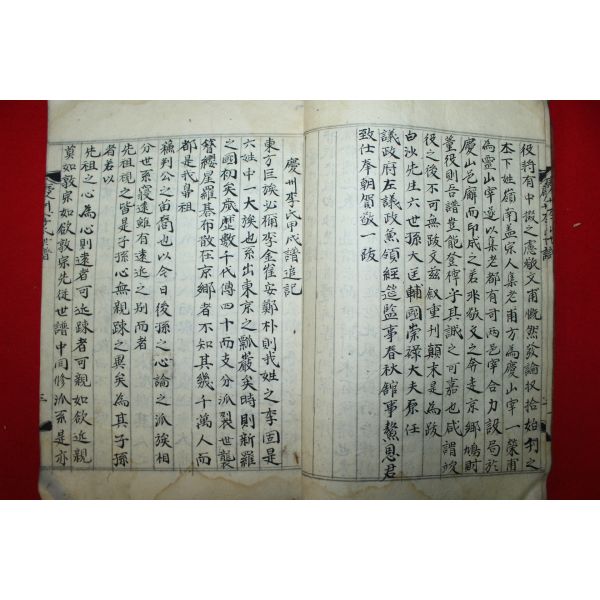 役將有中撤之慮敬文甫慨然發論收拾始刋之
本下姓嶺南盖宗人集老甫方爲慶山宰一榮甫
爲靈山宰遂以集老都有司兩邑宰合力設局於
慶山邑廨而印成之若非敬文之奔走京鄕鳩財
董役則吾譜豈能登梓乎其誠之可嘉也咸謂汝
役之後不可無跋文玆叙重刊顚末是爲跋
白沙先生六世孫大匡輔國崇祿大夫原任
議政府左議政兼領經筵監事春秋館事鰲恩君
致仕奉朝賀敬一跋
慶州李氏甲戌譜追記
東方巨族必稱李金崔安鄭朴則我姓之李固是
六姓中一大族也系出東京之瓢巖矣時則新羅
之國初矣歲歷數千代傳四十而支分派裂世襲
簪纓星羅碁布散在京鄕者不知其幾千萬人而
都是我鼻祖
蘇判公之苗裔也以今日後孫之心論之派族相
分世系寢遠雖有遠近之別而若
先祖視之皆是子孫心無親踈之異矣爲其子孫
者若以
先祖之心爲心則遠者可近踈者可親如欲近親
莫如敦宗如欲敦宗先從世譜中同修派系是亦